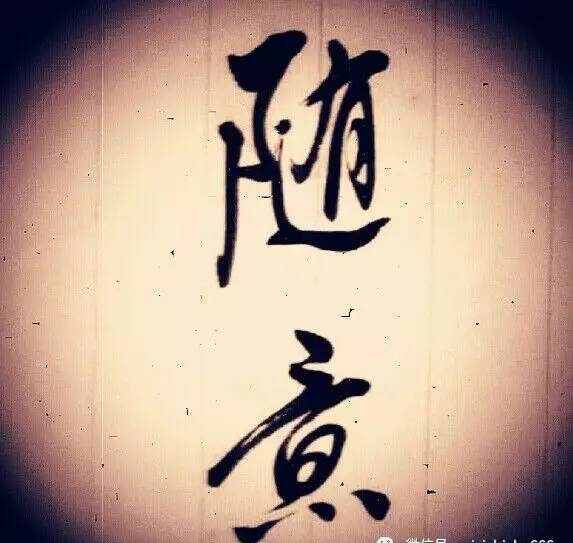 随意
微信号